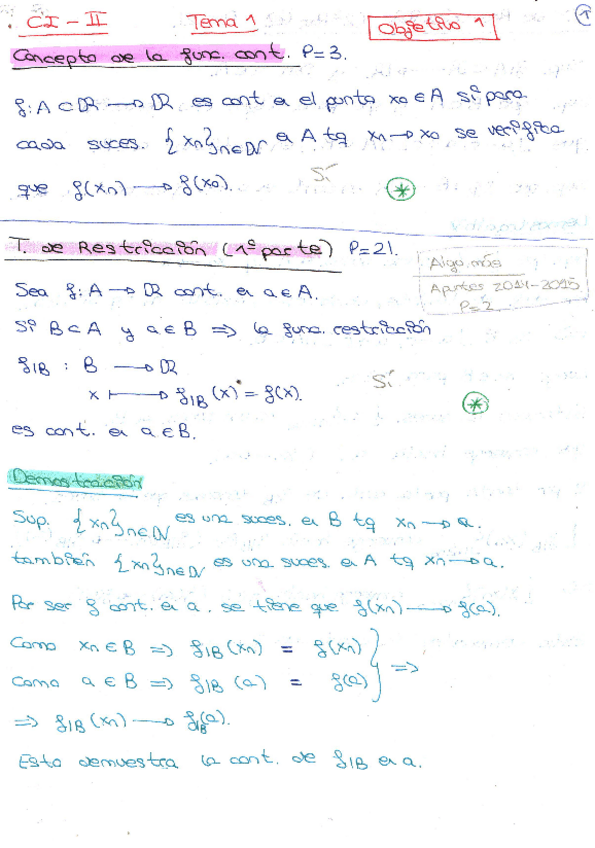 . CI-II Tema 1 Objetivo 1 1
Concepto de la func. cont. P=3.
f: A ⊂ ℝ → ℝ es cont en el punto x₀ ∈ A si para
cada suces. {xₙ}ₙ∈ℕ en A tq xₙ → x₀ se verifica
que f(xₙ) → f(x₀). Sí *
T. de Restricción (1ª parte) P=21.
Algo más
Apuntes 2014-2015
P=2
Sea f: A → ℝ cont. en a ∈ A.
Si B ⊂ A y a ∈ B ⇒ la func. restricción
f|B : B → ℝ
x ↦ f|B (x) = f(x). Sí *
es cont. en a ∈ B.
Demostración
Sup. {xₙ}ₙ∈ℕ es una suces. en B tq xₙ → a.
también {xₙ}ₙ∈ℕ es una suces. en A tq xₙ → a.
Por ser f cont. en a, se tiene que f(xₙ) → f(a).
Como xₙ ∈ B ⇒ f|B (xₙ) = f(xₙ)
Como a ∈ B ⇒ f|B (a) = f(a) } ⇒
⇒ f|B (xₙ) → f|B(a).
Esto demuestra la cont. de f|B en a.